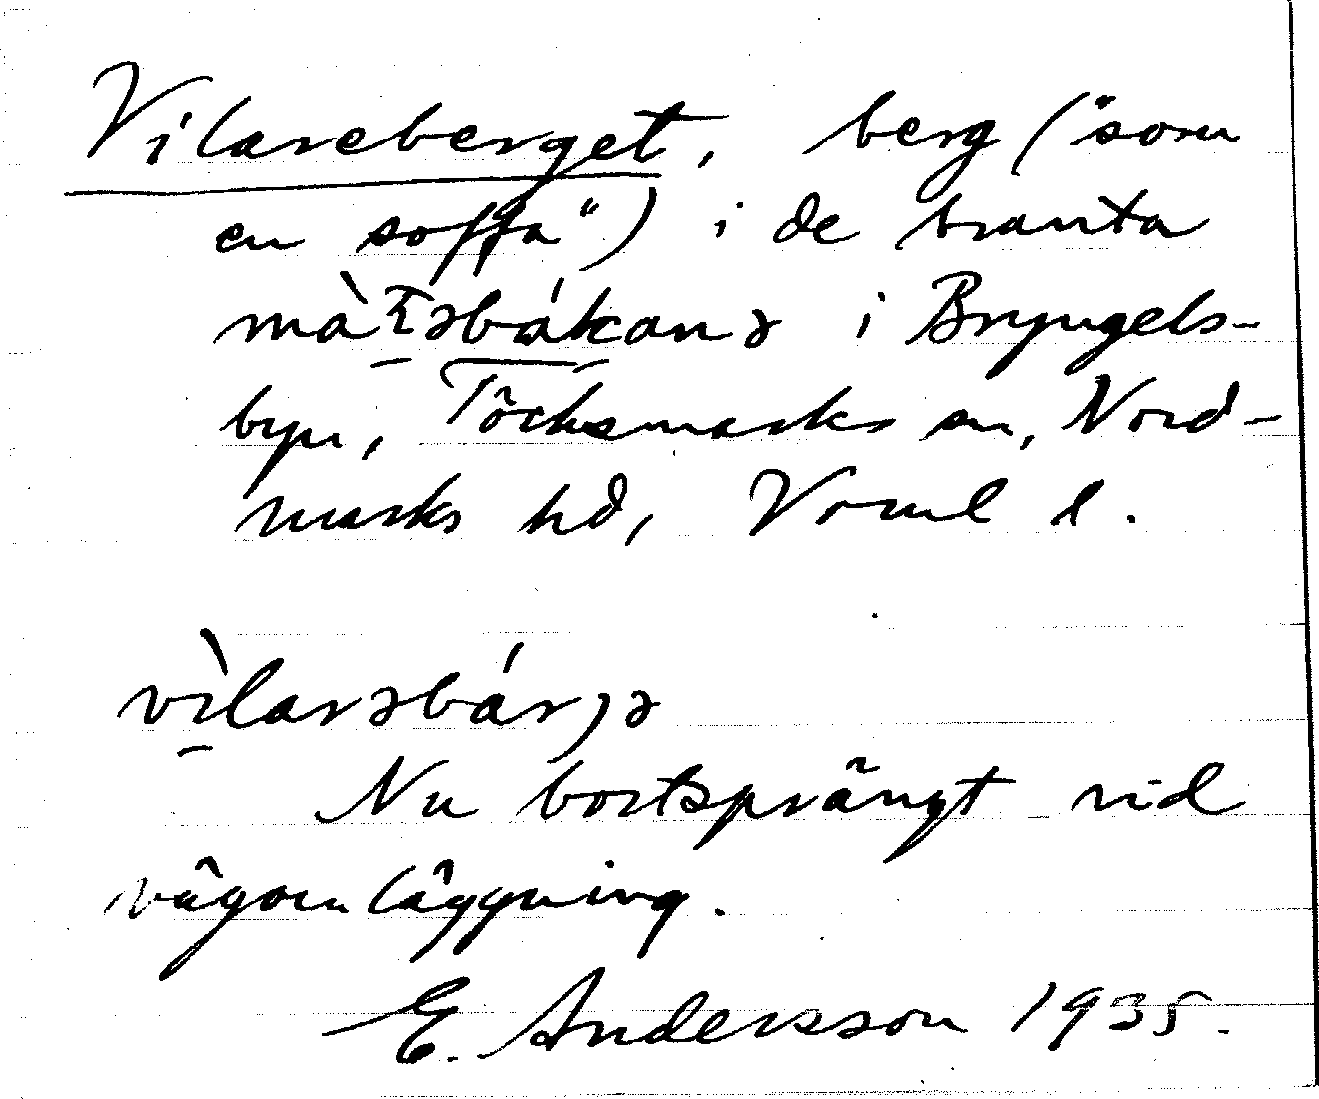 Vilareberget, berg ("som
en soffa") i de branta
i Bryngels-
byn, Töcksmarks sn, Nord-
marks hd, Vrml l.
vìlarəbárjə
Nu bortsprängt vid
vägomläggning.
E. Andersson 1935.